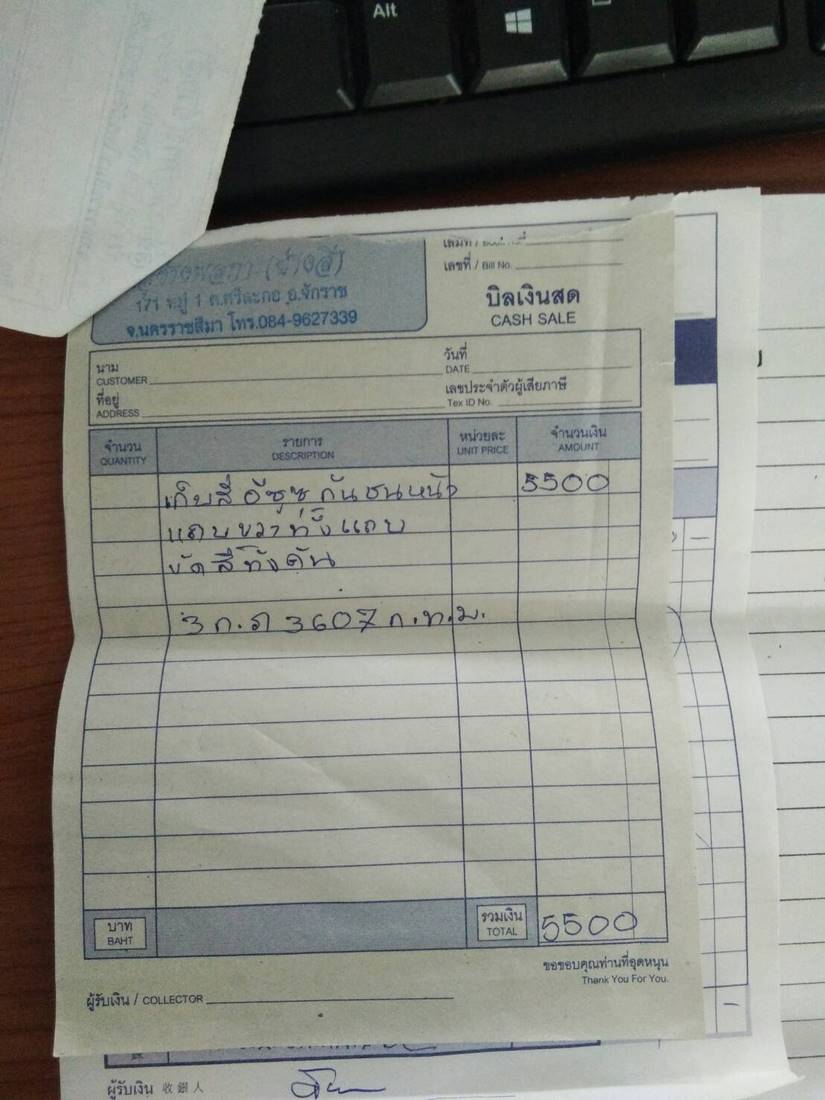 Alt
(ช่างสี)
171 หมู่ 1 ต.ศรีละกอ อ.จักราช
จ.นครราชสีมา โทร.084-9627339
เลขที่ / Bill No.
บิลเงินสด
CASH SALE
นาม
CUSTOMER
วันที่
DATE
ที่อยู่
ADDRESS
เลขประจำตัวผู้เสียภาษี
Tex ID No.
จำนวน
QUANTITY
รายการ
DESCRIPTION
หน่วยละ
UNIT PRICE
จำนวนเงิน
AMOUNT
เก็บสี อีซูซุ กันชนหน้า 5500
แถบขวาทั้งแถบ
ขัดสีทั้งคัน
3607 ก.ท.ม.
บาท
BAHT
รวมเงิน
TOTAL
5500
ขอขอบคุณท่านที่อุดหนุน
Thank You For You.
ผู้รับเงิน / COLLECTOR
ผู้รับเงิน 收銀人